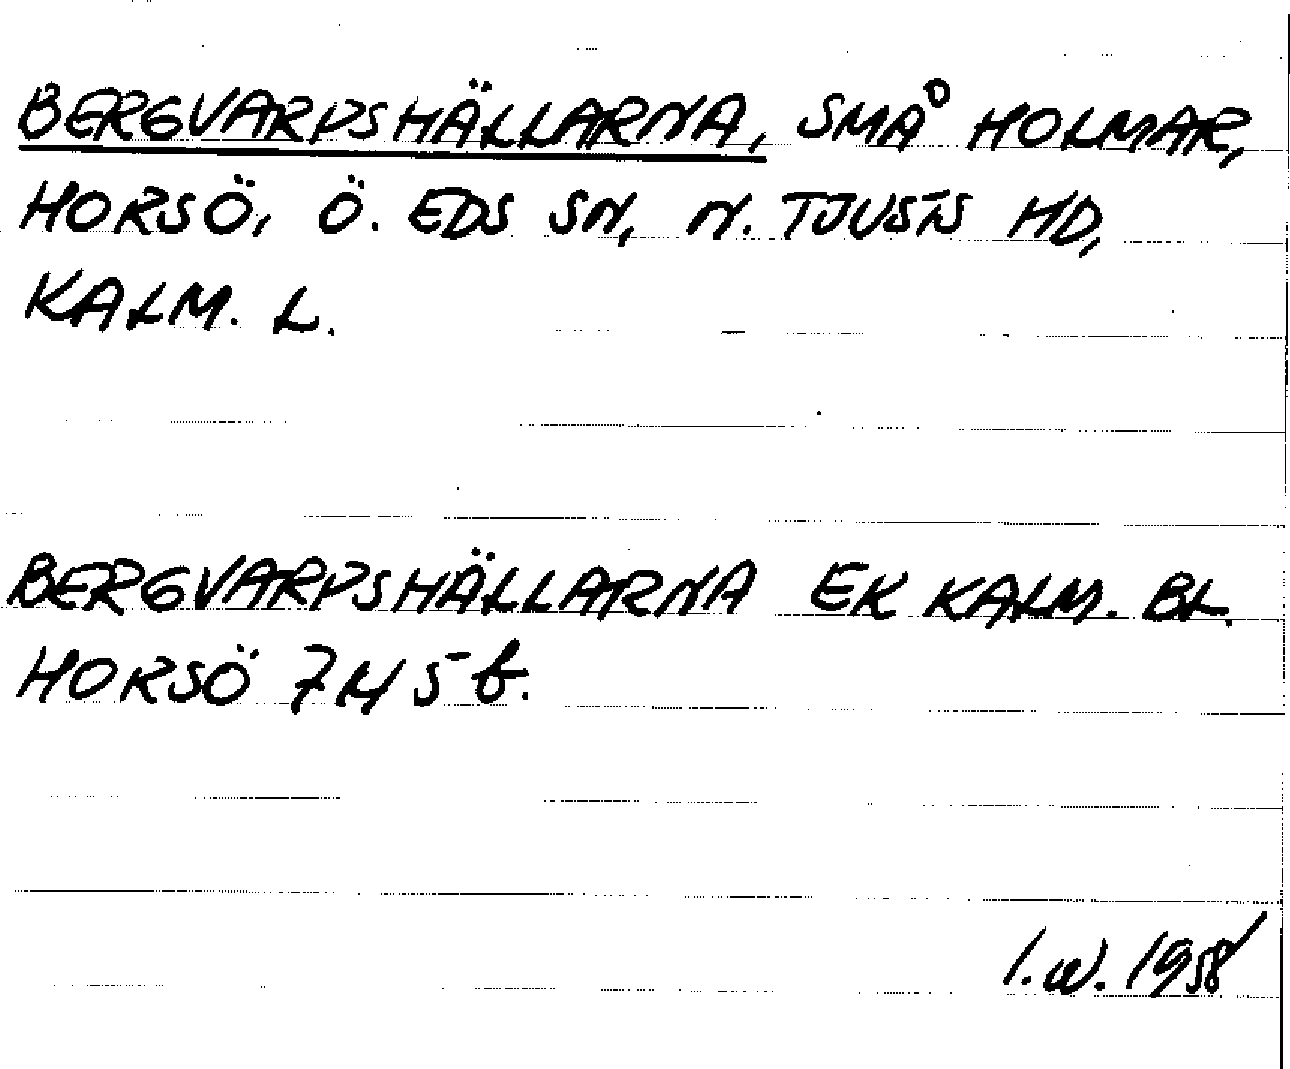 BERGVARPSHÄLLARNA, SMÅ HOLMAR,
HORSÖ, Ö. EDS SN, N. TJUSTS HD,
KALM. L.
BERGVARPSHÄLLARNA EK KALM. BL.
HORSÖ 7H5b.
I.W. 1958